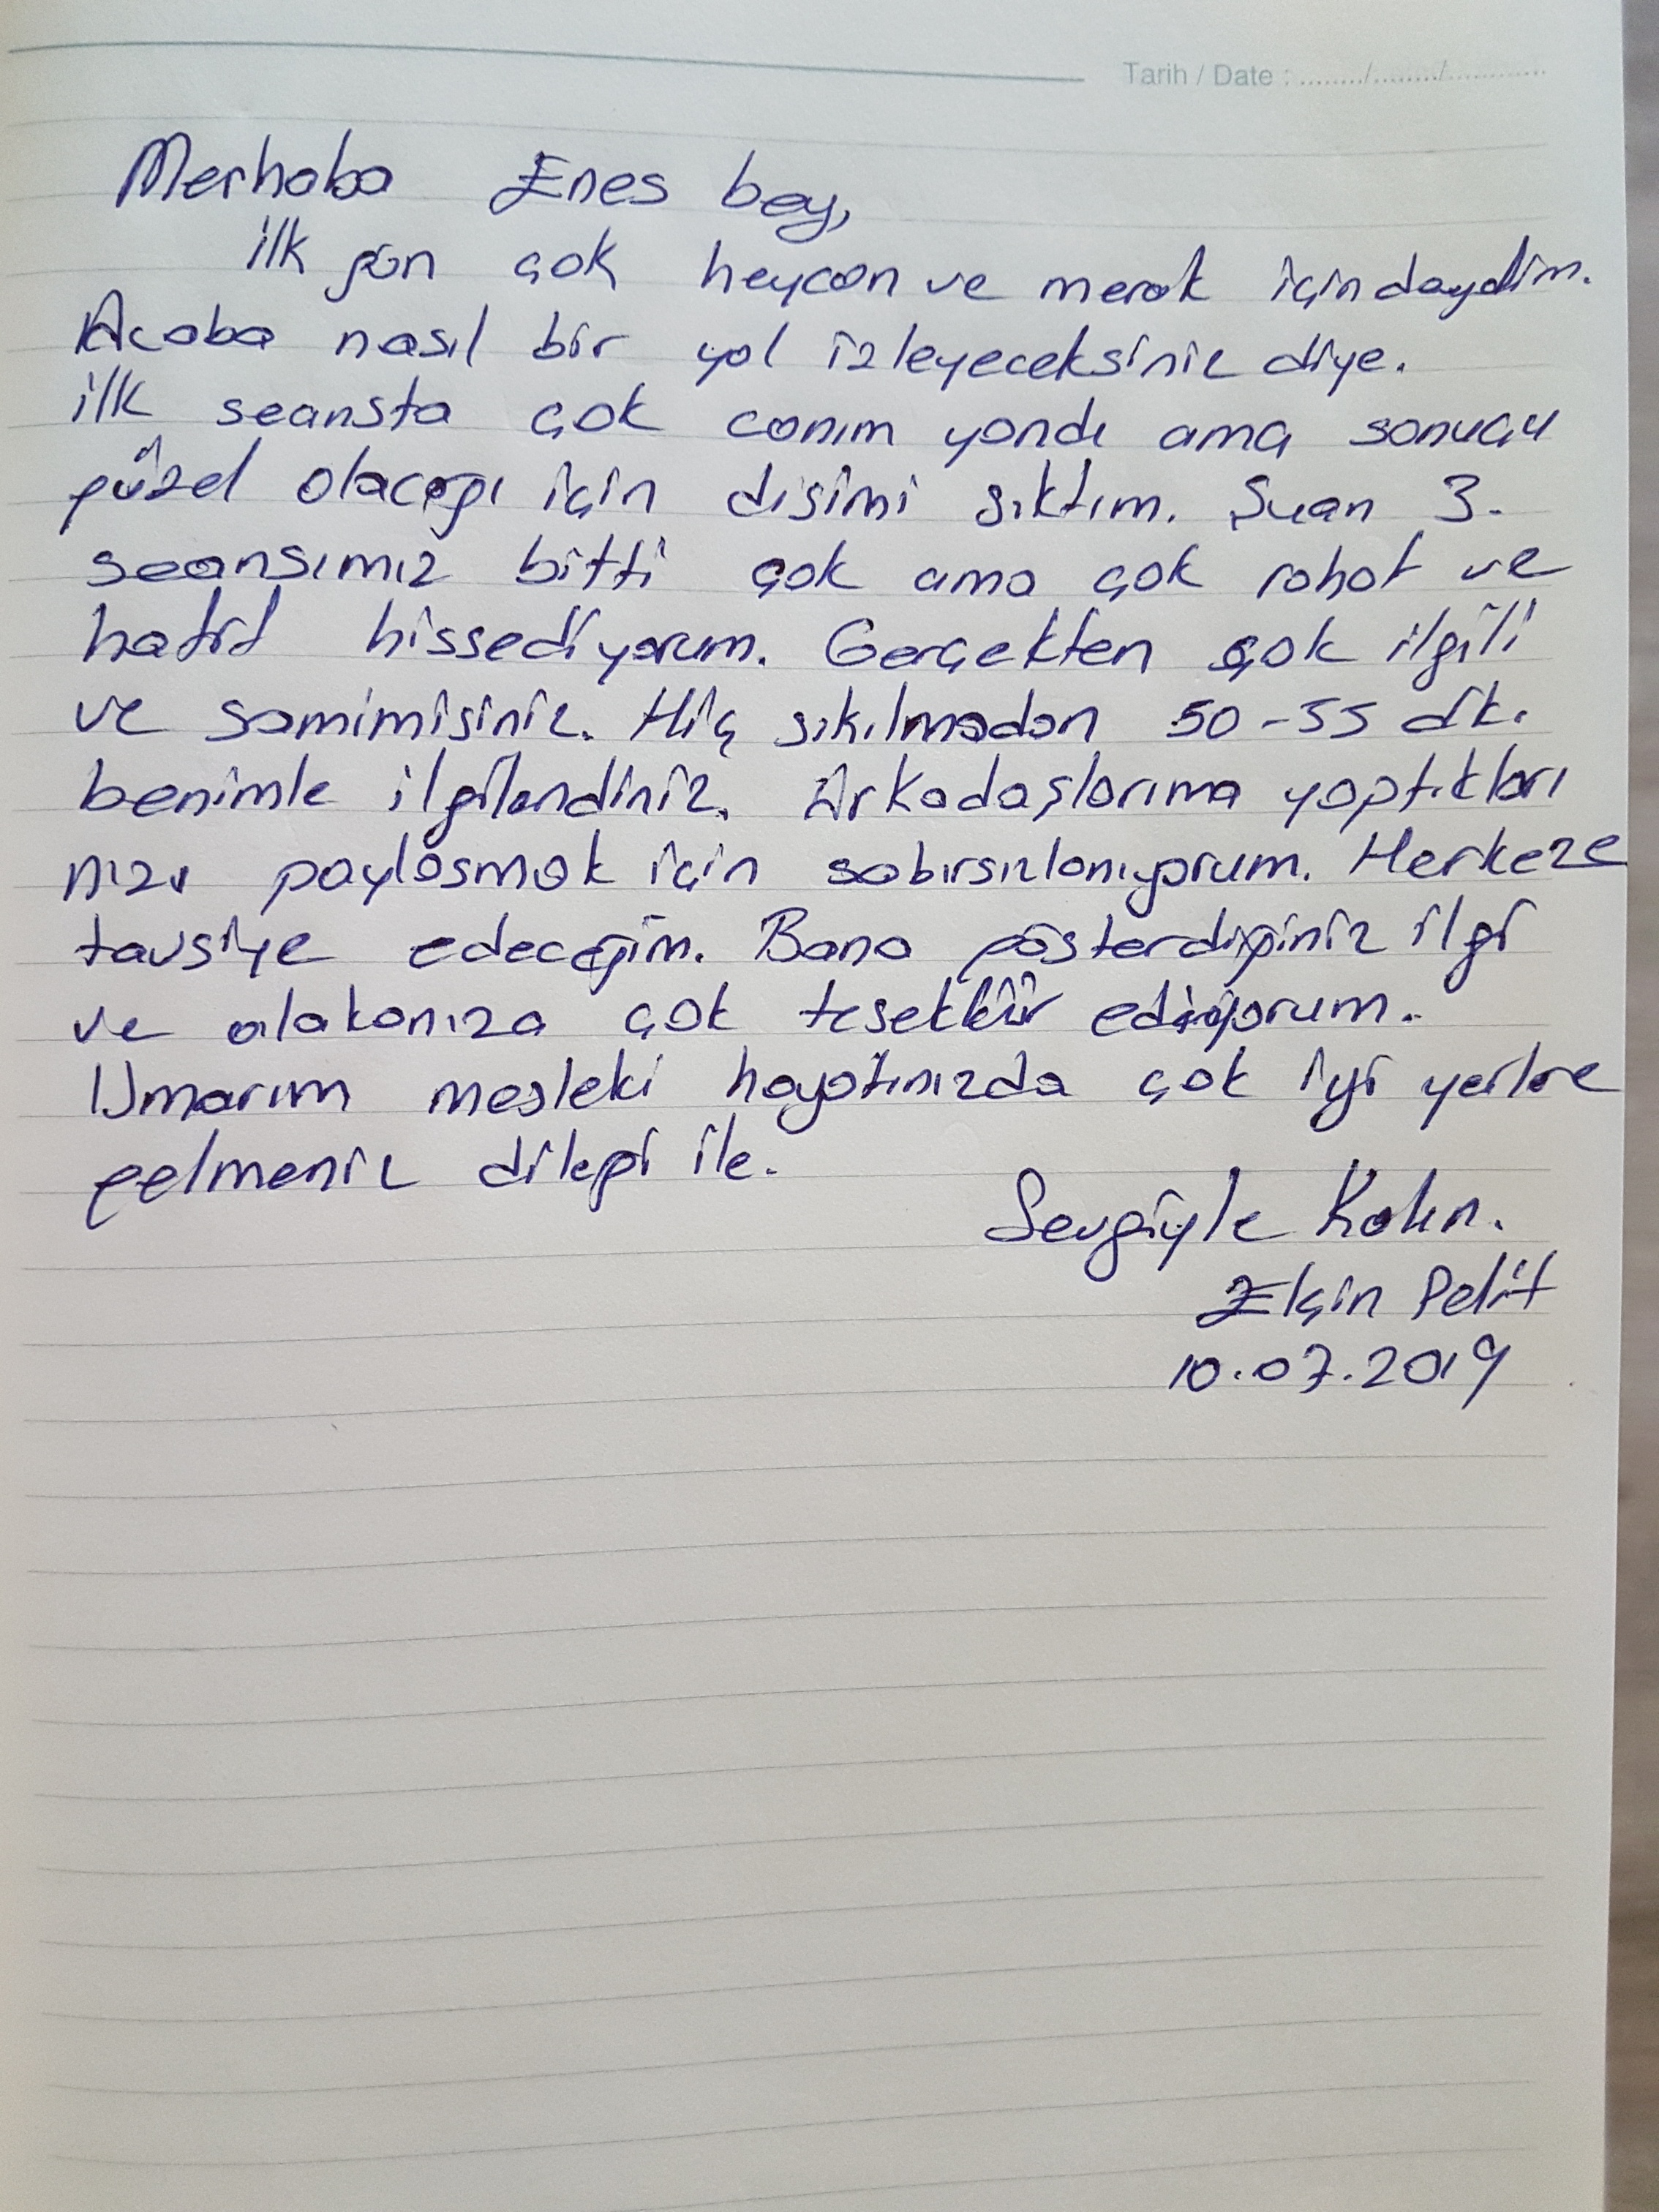 Tarih / Date : ......../......../............
Merhaba Enes bey,
ilk gün çok heycan ve merak içindaydim.
Acaba nasıl bir yol izleyeceksiniz diye.
ilk seansta çok canım yandı ama sonucu
güzel olacağı için disimi sıktım. Şuan 3.
seansımız bitti çok ama çok rahat ve
hafif hissediyorum. Gerçekten çok ilgili
ve samimisiniz. Hiç sıkılmadan 50-55 dk.
benimle ilgilendiniz. Arkadaşlarıma yaptıkları
nızı paylasmak için sabırsızlanıyorum. Herkeze
tavsiye edeceğim. Bana gösterdiğiniz ilgi
ve alakanıza çok tesekkür ediyorum.
Umarım mesleki hayatınızda çok iyi yerlere
gelmeniz dileği ile.
Sevgiyle Kalın.
Elçin Pelit
10.07.2019